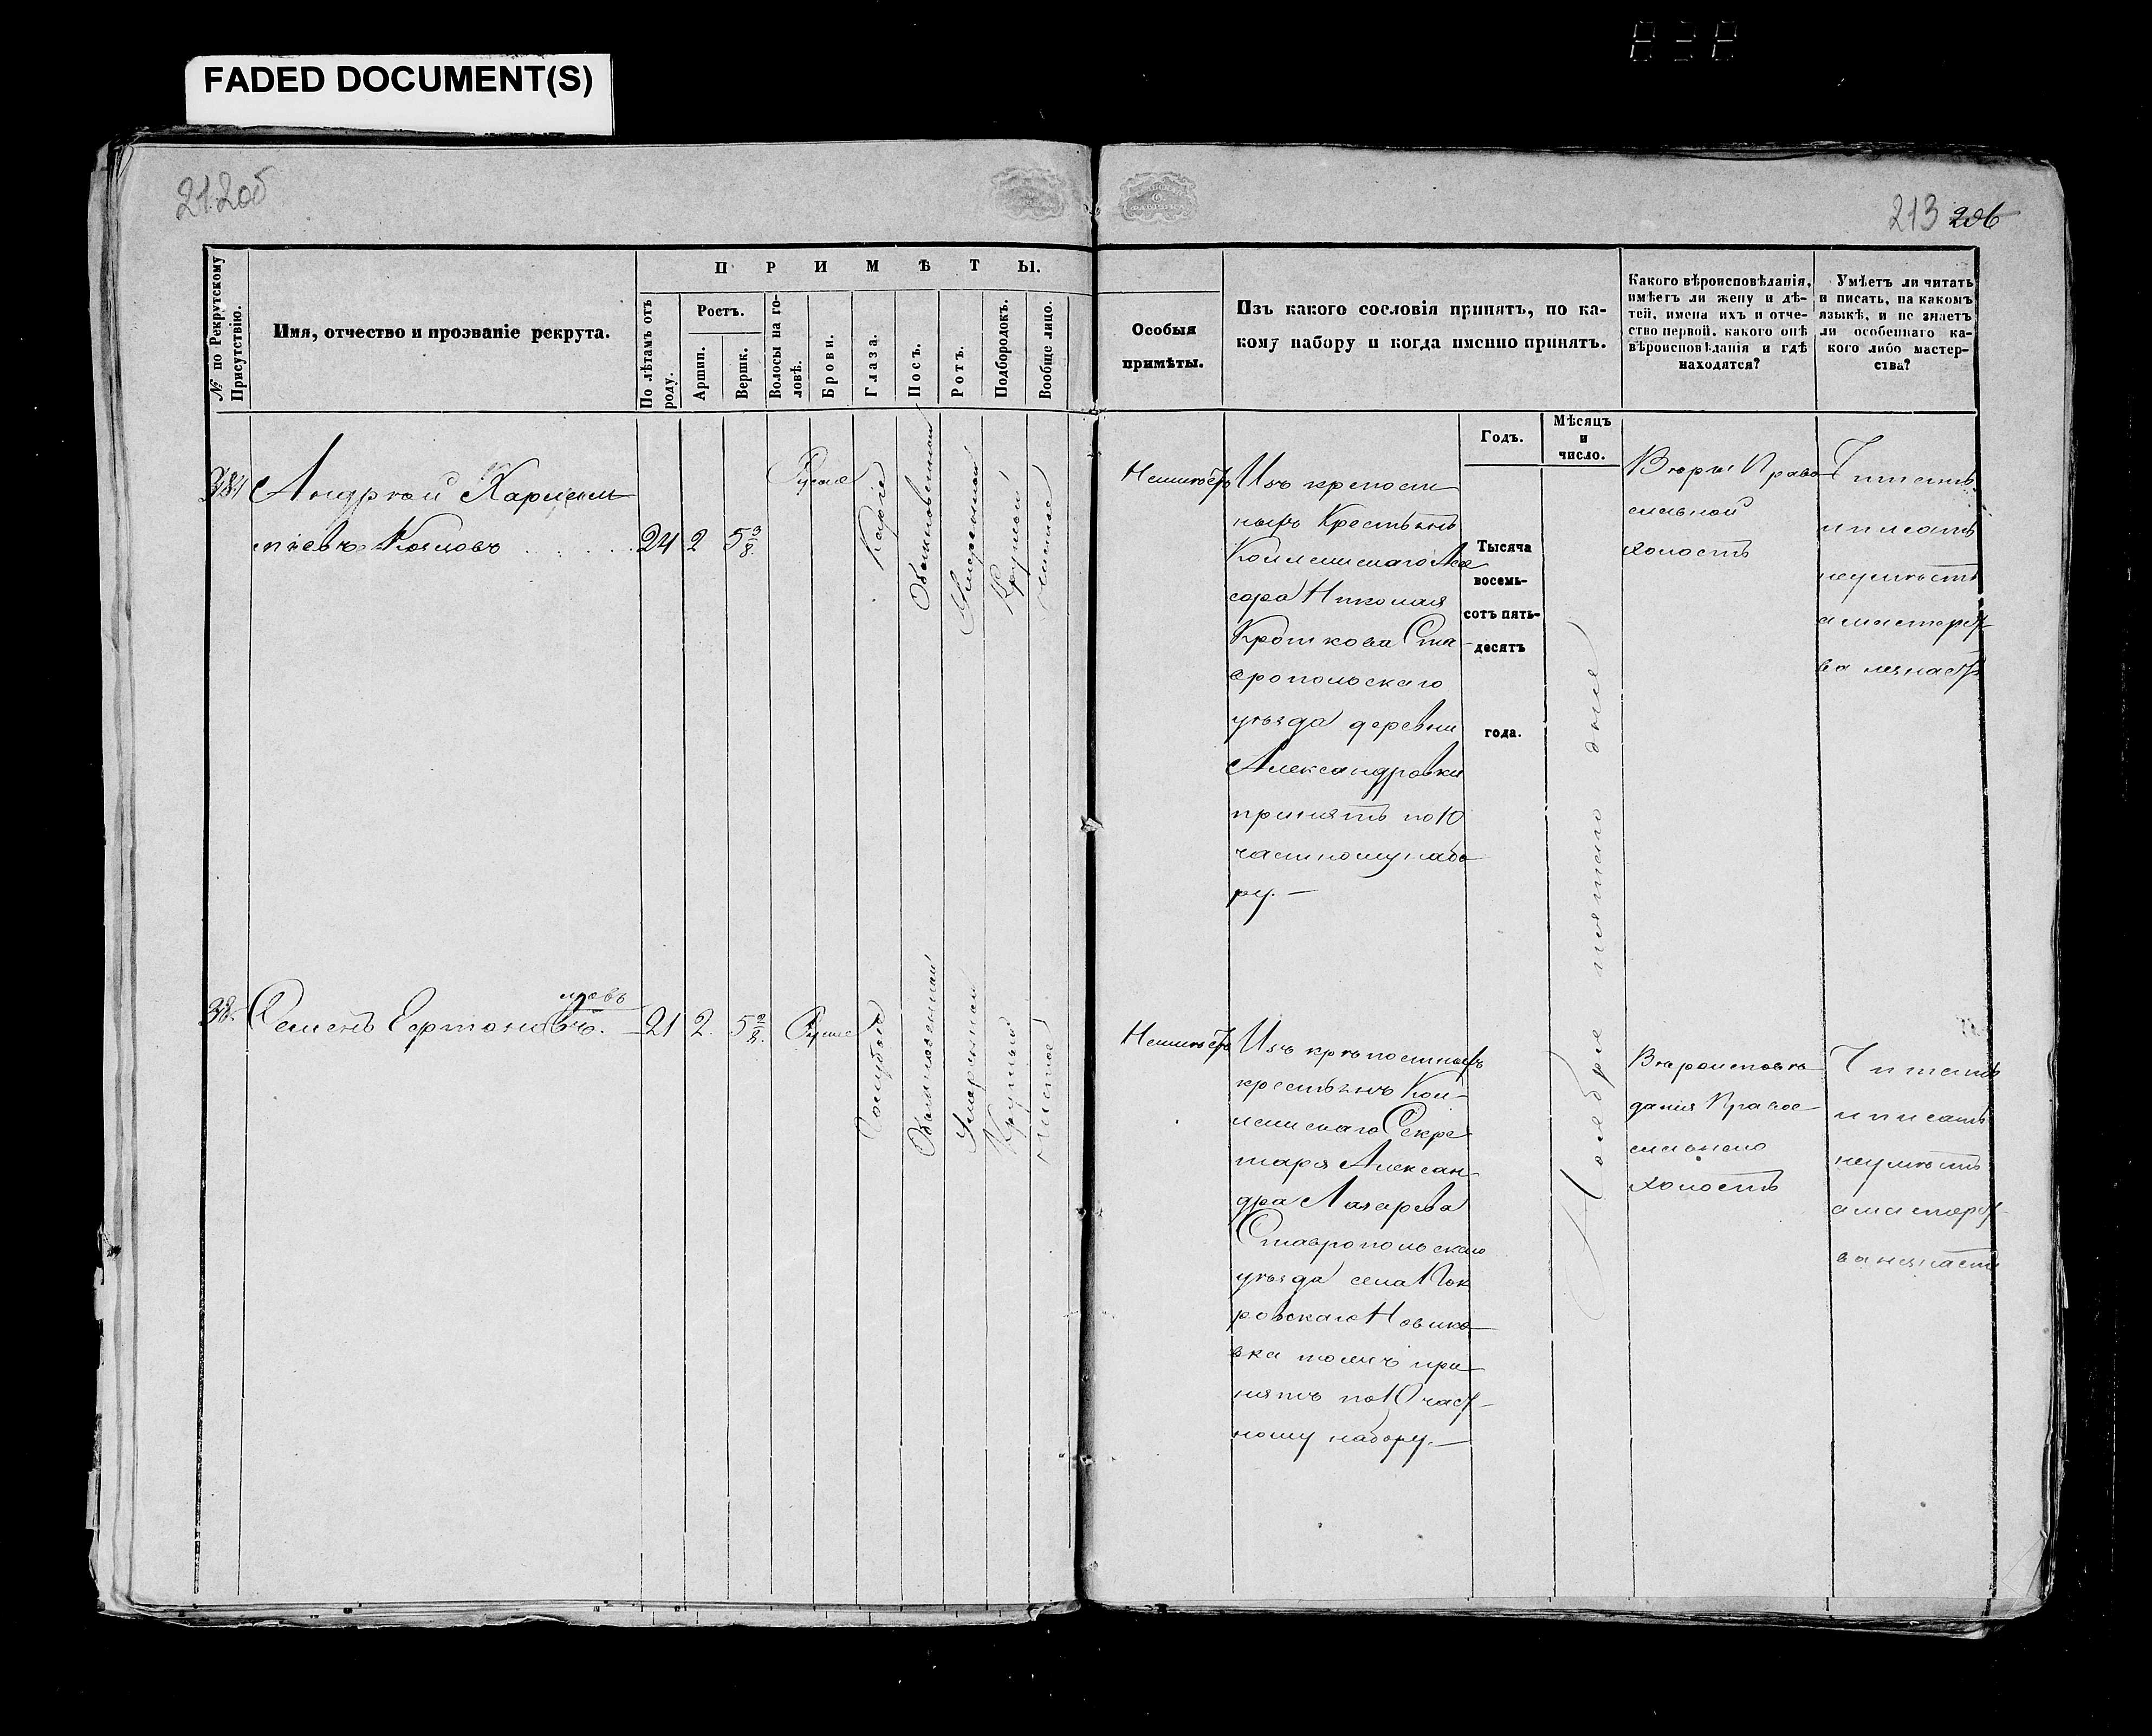 FADED DOCUMENT(S)
212об
213 206
№ по Рекрутскому Присутствію.
Имя, отчество и прозваніе рекрута.
ПРИМѢТЫ.
По лѣтамъ отъ роду.
Ростъ.
Аршин.
Вершк.
Волосы на головѣ.
Брови.
Глаза.
Носъ.
Ротъ.
Подбородокъ.
Вообще лицо.
Особыя
примѣты.
Изъ какого сословія принятъ, по ка-
кому набору и когда именно принятъ.
Годъ.
Мѣсяцъ
и
число.
Какого вѣроисповѣданія,
имѣетъ ли жену и дѣ-
тей, имена ихъ и отче-
ство первой, какого онѣ
вѣроисповѣданія и гдѣ
находятся?
Умѣетъ ли читать
и писать, на какомъ
языкѣ, и не знаетъ
ли особеннаго ка-
кого либо мастер-
ства?
Андрѣй
Козловъ
24 2 5 3/8.
Русые
Каріе
Обыкновенной
Умеренной
Круглый
Чистое
Неимѣетъ
Изъ крепост
ныхъ Крестьянъ
Коллежскаго Асе
сора Николая
Кроткова Ста-
вропольскаго
уѣзда деревни
Александровки
принятъ по 10
частному набо
ру.—
Тысяча
восемь-
сотъ пять-
десятъ
года.
Ноября пятаго дня
Вѣры Право
славной
холостъ
Читать
и писать
неумѣетъ
а мастерст
ва незнаетъ
Семенъ
21 2. 5 2/8.
Русые
Голубые
Обыкновенной
Умеренной
Круглый
Чистое
Неимѣетъ
Изъ крѣпостныхъ
крестьянъ Кол-
лежскаго Секре
таря Алексан-
дра Лазарева
Ставропольскаго
уѣзда села Пок
ровскаго Новико
вка тожъ при
нятъ по 10 част-
ному набору.—
Вѣроисповѣ
данія Правос-
лавнаго
холостъ
Читать
и писать
неумѣетъ
а мастерст-
ва незнаетъ